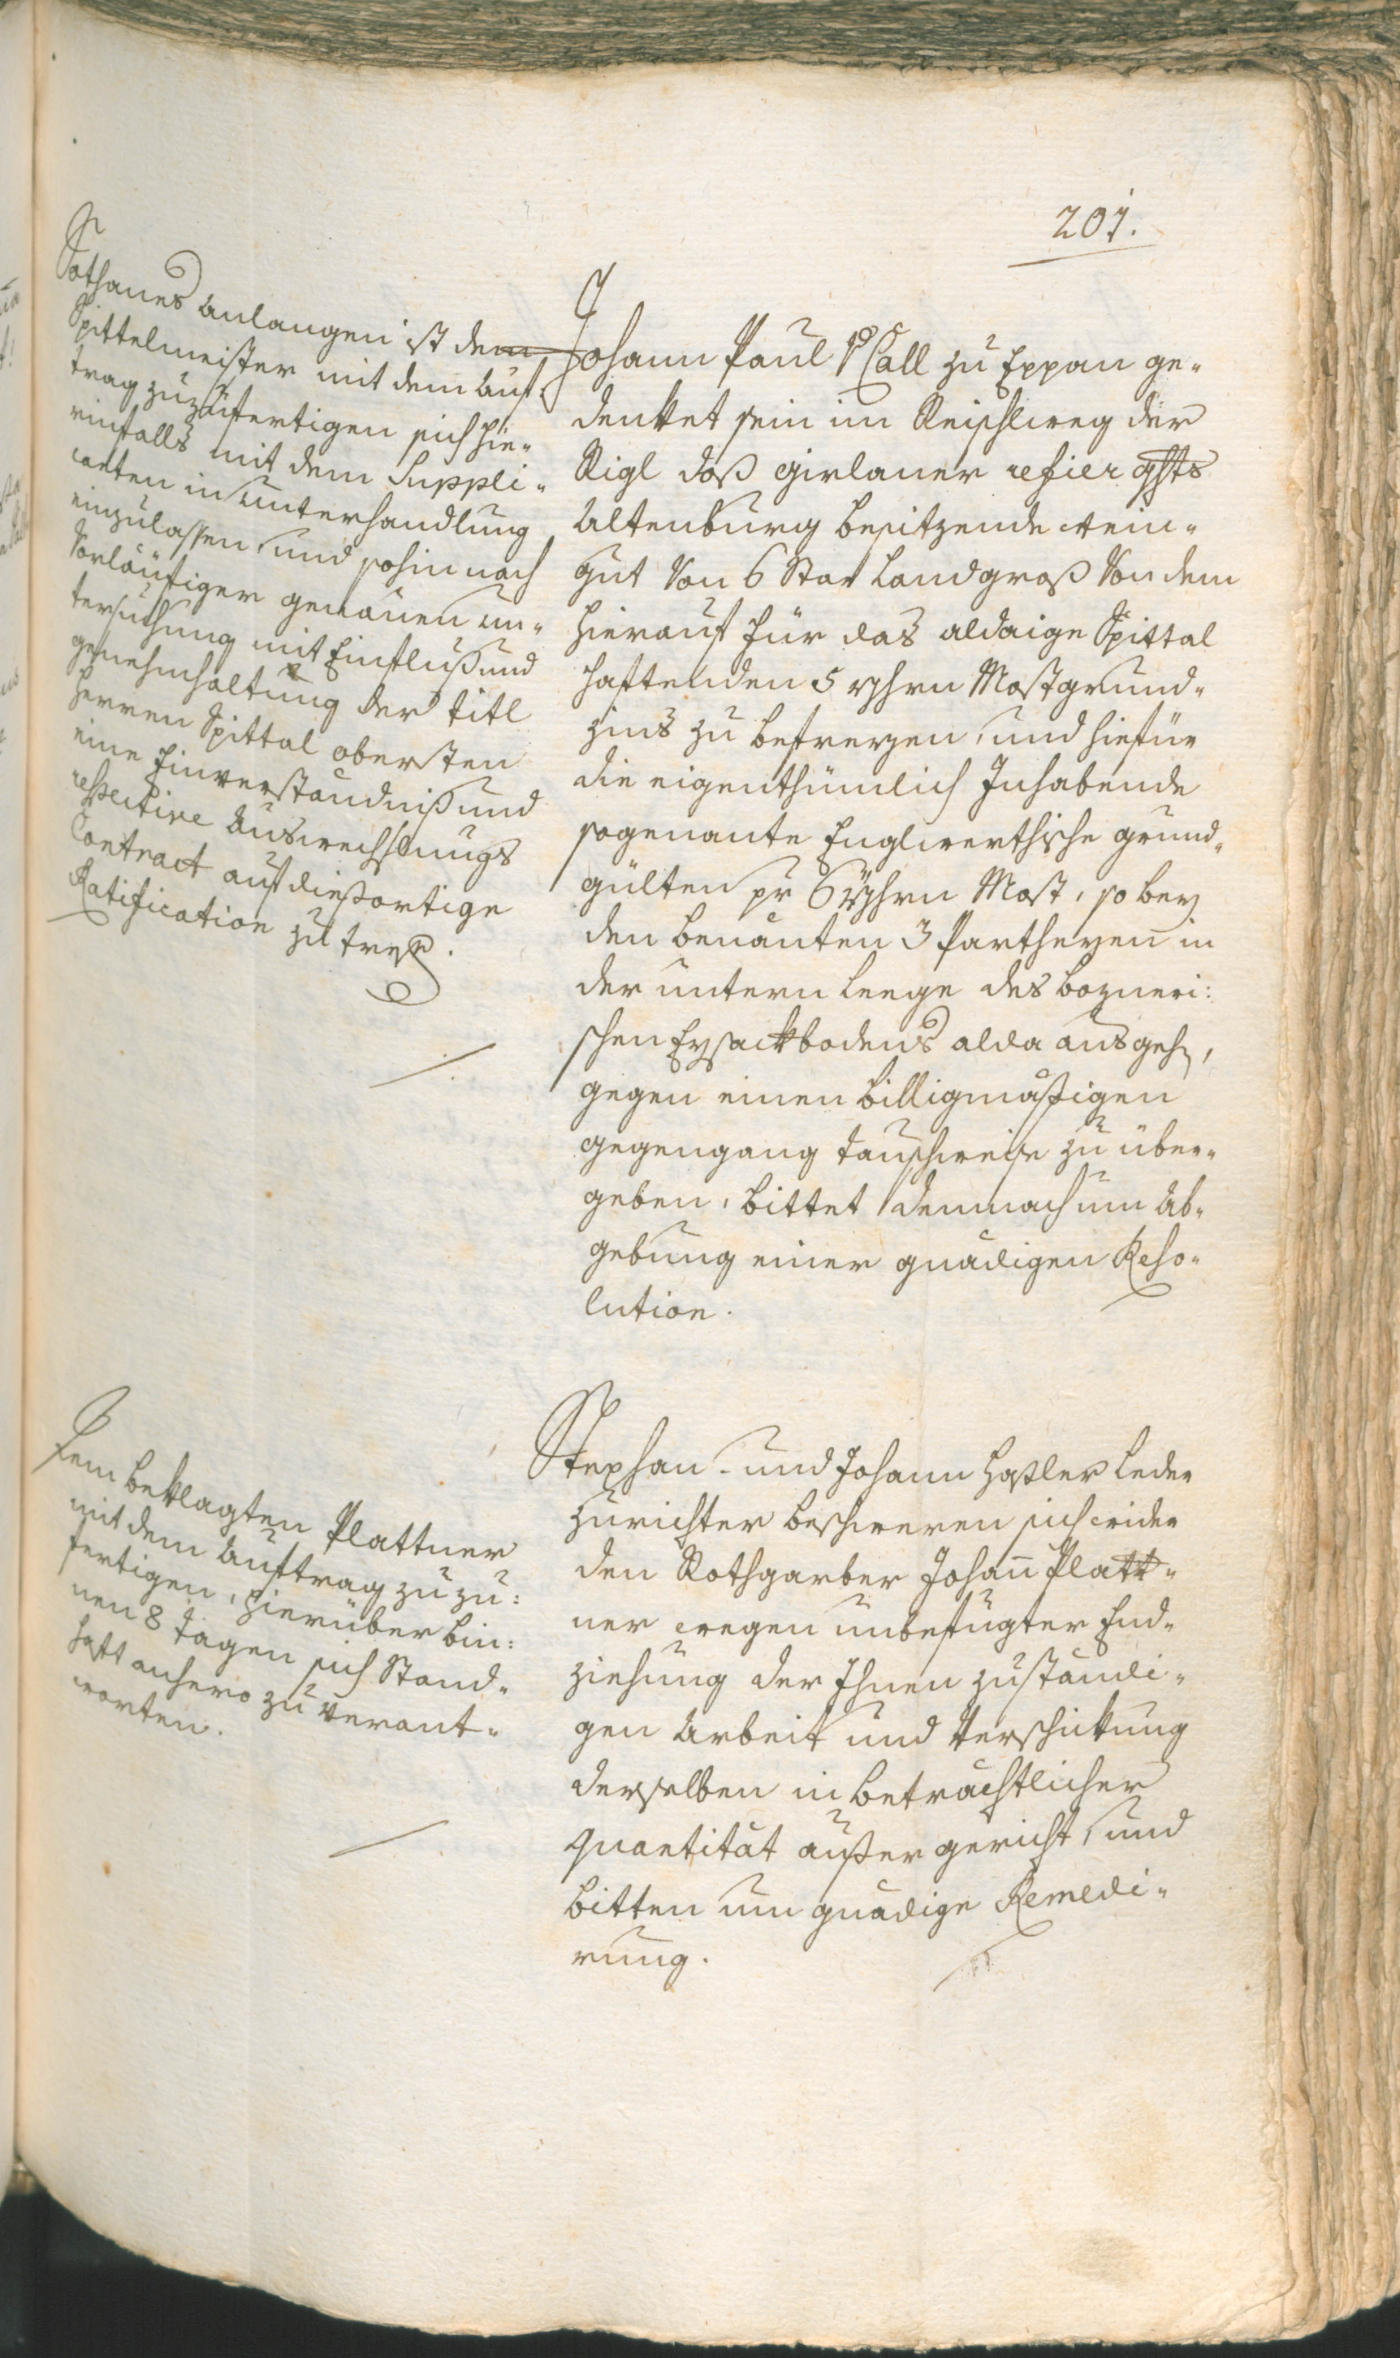 201.
Sothanes anlangen ist dem
Spittelmeister mit dem auf-
trag zuzufertigen sich hie-
rinfalls mit dem Suppli-
canten in unterhandlung
einzulassen und sohin nach
vorläufiger genauen un-
tersuchung mit Einfluß und
genehmhaltung der titl
Herren Spittal obersten
eine Einverständniß und
respective Auswechslungs
Contract auf dießortige
Ratification zu treffen.
Johann Paul v Call zu Eppan ge-
denket sein im Reischweg der
Rigl doß girlaner refier ghts
Altenburg besitzende Wein-
gut von 6 Star Land groß von dem
hierauf für das aldaige Spittal
haftenden 5 yhrn Mostgrund-
zins zu befreyen, und hiefür
die eigenthümlich Inhabende
sogenante Englwerthische grund-
gülten pr 6 yhrn Most, so bey
den benanten 3 Partheyen in
der untern Leege des bozneri:
schen Eysackbodens alda ausgehn,
gegen einen billigmäßigen
gegengang tauschweise zu über-
geben, bittet demnach um Ab-
gebung einer gnädigen Reso-
lution.
Dem beklagten Plattner
mit dem Auftrag zuzu:
fertigen, hierüber bin:
nen 8 tagen sich Stand-
haft anhero zu verant-
worten.
Stephan- und Johann Haßler Leder
zurichter beschweren sich wider
den Rothgarber Johann Platt-
ner wegen unbefugter End-
ziehung der Ihnen zuständi-
gen Arbeit und Verschickung
derselben in beträchtlicher
quantität außer gericht, und
bitten um gnädige Remedi-
rung.